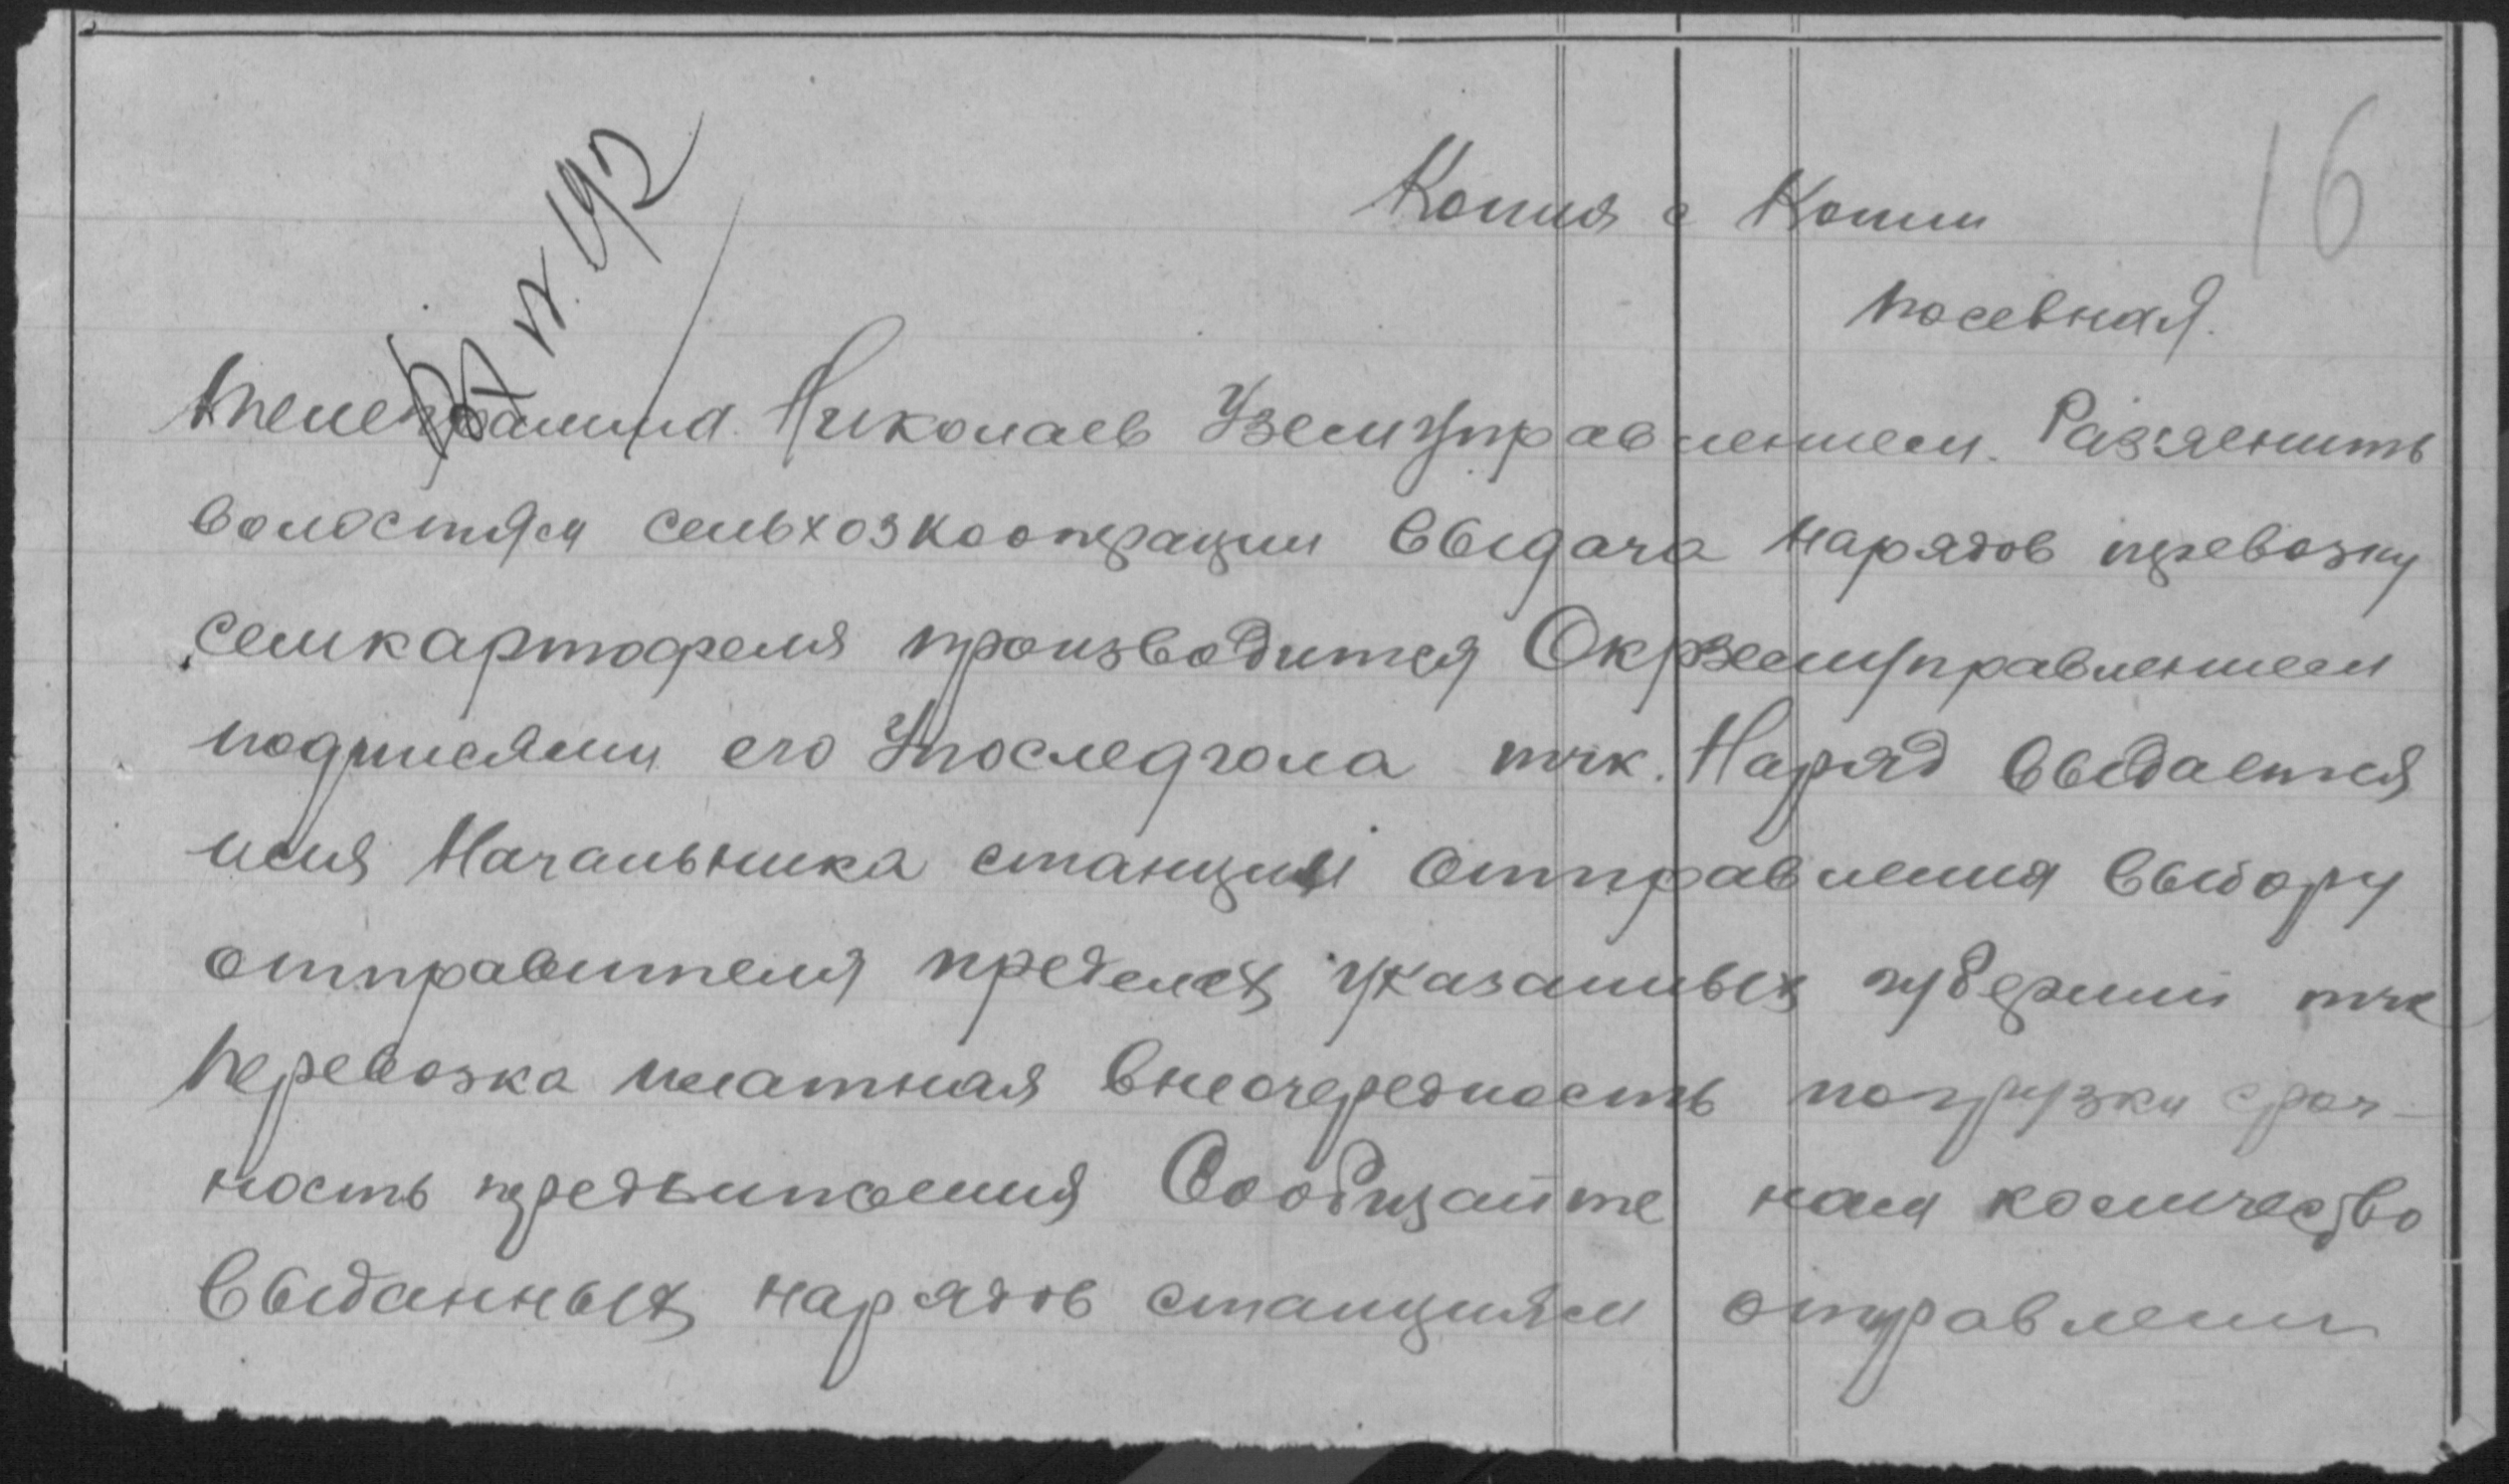 16
Копия с Копии
посевная.
Вх №. 192
телеграмма. Николаев Уземуправлением. Раз'яснить
волостям сельхозкооперации выдача нарядов перевозку
семкартофеля производится Окрземуправлением
подписями его Упоследгола тчк. Наряд выдается
имя Начальника станции отправления выбору
отправителя пределах указанных губернии тчк
перевозка платная внеочередность погрузки сроч-
ность передвижения Сообщайте нам количество
выданных нарядов станциям отправлении